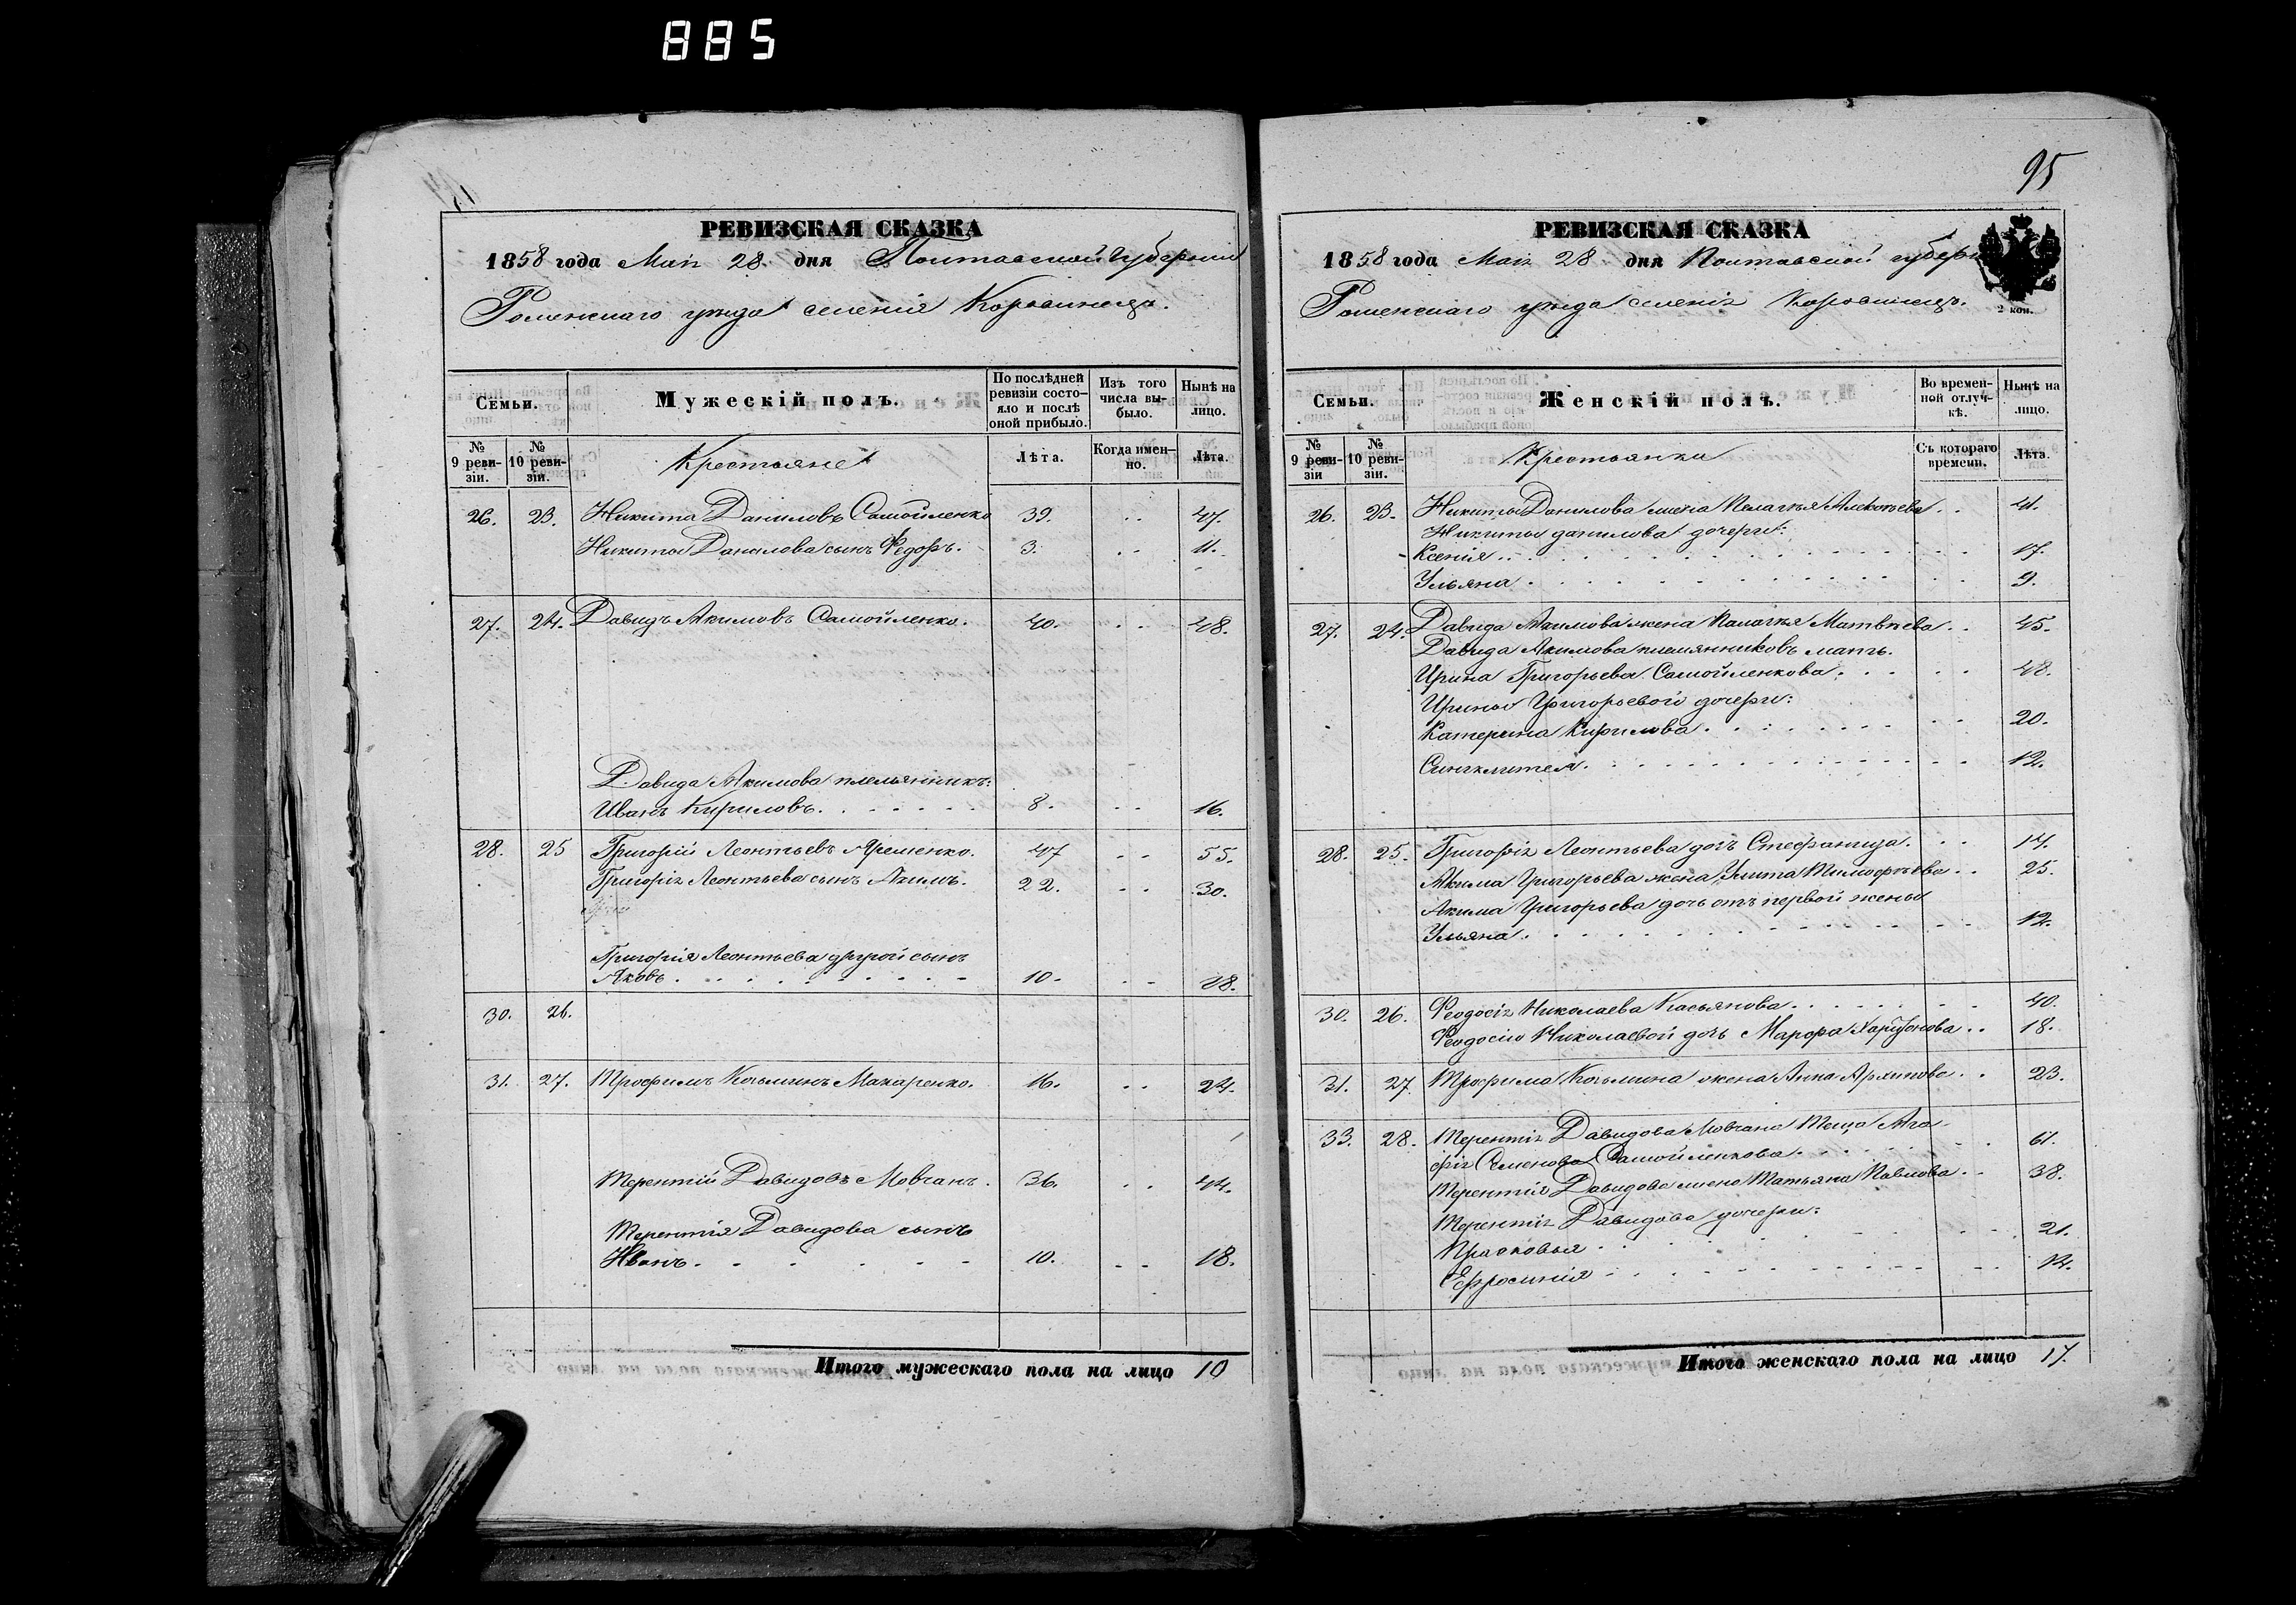 885
РЕВИЗСКАЯ СКАЗКА
1858 года Маія 28 дня Полтавской Губерніи
Роменскаго уѣзда селенія Коровинецъ.
Семьи.
Мужескій полъ.
По послѣдней ревизіи состо-яло и послѣ оной прибыло.
Изъ того числа вы-было.
Нынѣ на лицо.
№ 9 реви-зіи.
№ 10 реви-зіи.
Крестьяне
Лѣта.
Когда имен-но.
Лѣта.
26. 23. Никита Даниловъ Самойленко 39. 47.
Никиты Данилова сынъ Федоръ. 3. 11.
27. 24. Давидъ Акимовъ Самойленко. 40. 48.
Давида Акимова племянникъ:
Иванъ Кириловъ. 8. 16.
28. 25 Григорій Леонтьевъ Яременко. 47 55.
Григорія Леонтьева сынъ Акимъ. 22. 30.
Григорія Леонтьева другой сынъ
Яковъ. 10. 18.
30. 26.
31. 27. Трофимъ Козьминъ Макаренко. 16. 24.
Терентій Давидовъ Мовчанъ. 36. 44.
Терентія Давидова сынъ
Иванъ. 10. 18.
Итого мужескаго пола на лицо 10
95
РЕВИЗСКАЯ СКАЗКА
1858 года Маія 28 дня Полтавской губерн
Роменскаго уѣзда селенія Коровинецъ.
2 коп.
Семьи.
Женскій полъ.
Во времен-ной отлуч-кѣ.
Нынѣ на лицо.
№ 9 реви-зіи
№ 10 реви-зіи.
Крестьянки
Съ котораго времени.
Лѣта.
26. 23. Никиты Данилова жена Пелагѣя 41.
Никиты Данилова дочери:
Ксенія 17.
Ульяна 9.
27. 24. Давида Акимова жена Палагѣя Матвѣева 45.
Давида Акимова племянниковъ мать.
Ирина Григорьева Самойленкова. 48.
Ирины Григорьевой дочери:
Катерина Кирилова 20.
Синклитея. 12.
28. 25. Григорія Леонтьева дочь Стефанида. 14.
Акима Григорьева жена Улита Тимофѣева 25.
Акима Григорьева дочь отъ первой жены
Ульяна. 12.
30. 26. Феодосія Николаева Касьянова 40.
Феодосіи Николаевой дочь Марфа Харитонова 18.
31. 27 Трофима Козьмина жена Анна Архипова 23.
33. 28. Терентія Давидова Мовчана теща Ага-
фія Семенова Самойленкова. 61.
Терентія Давидова жена Татьяна Павлова 38.
Терентія Давидова дочери:
Прасковья 21.
Ефросинія 14.
Итого женскаго пола на лицо 17.